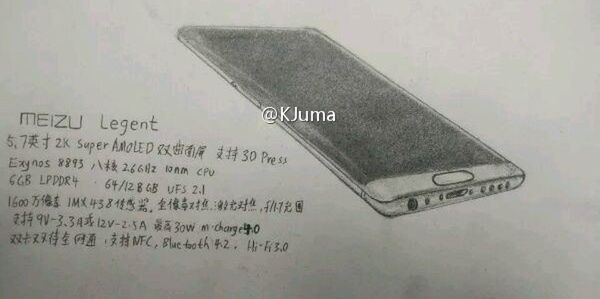 @KJuma
MEIZU Legent
5.7英寸 2K Super AMOLED 双曲面屏 支持3D Press
Exynos 8893 八核 2.6GHz 10nm CPU
6GB LPDDR4 · 64/128GB UFS 2.1
1600万像素 IMX438传感器, 全像素对焦, 激光对焦, f/1.7光圈
支持9V-3.3A或12V-2.5A 最高30W mcharge4.0
双卡双待全网通, 支持NFC, Bluetooth 4.2, Hi-Fi3.0